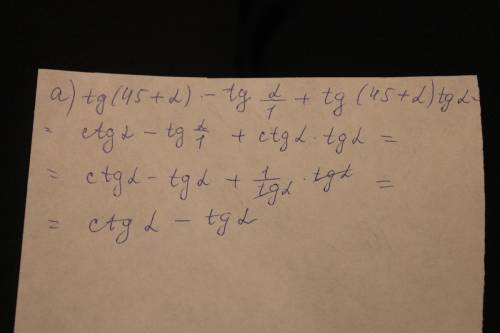 a) tg(45+α) - tg α/1 + tg(45+α)tgα=
= ctgα - tg α/1 + ctgα·tgα =
= ctgα - tgα + 1/tgα · tgα =
= ctgα - tgα